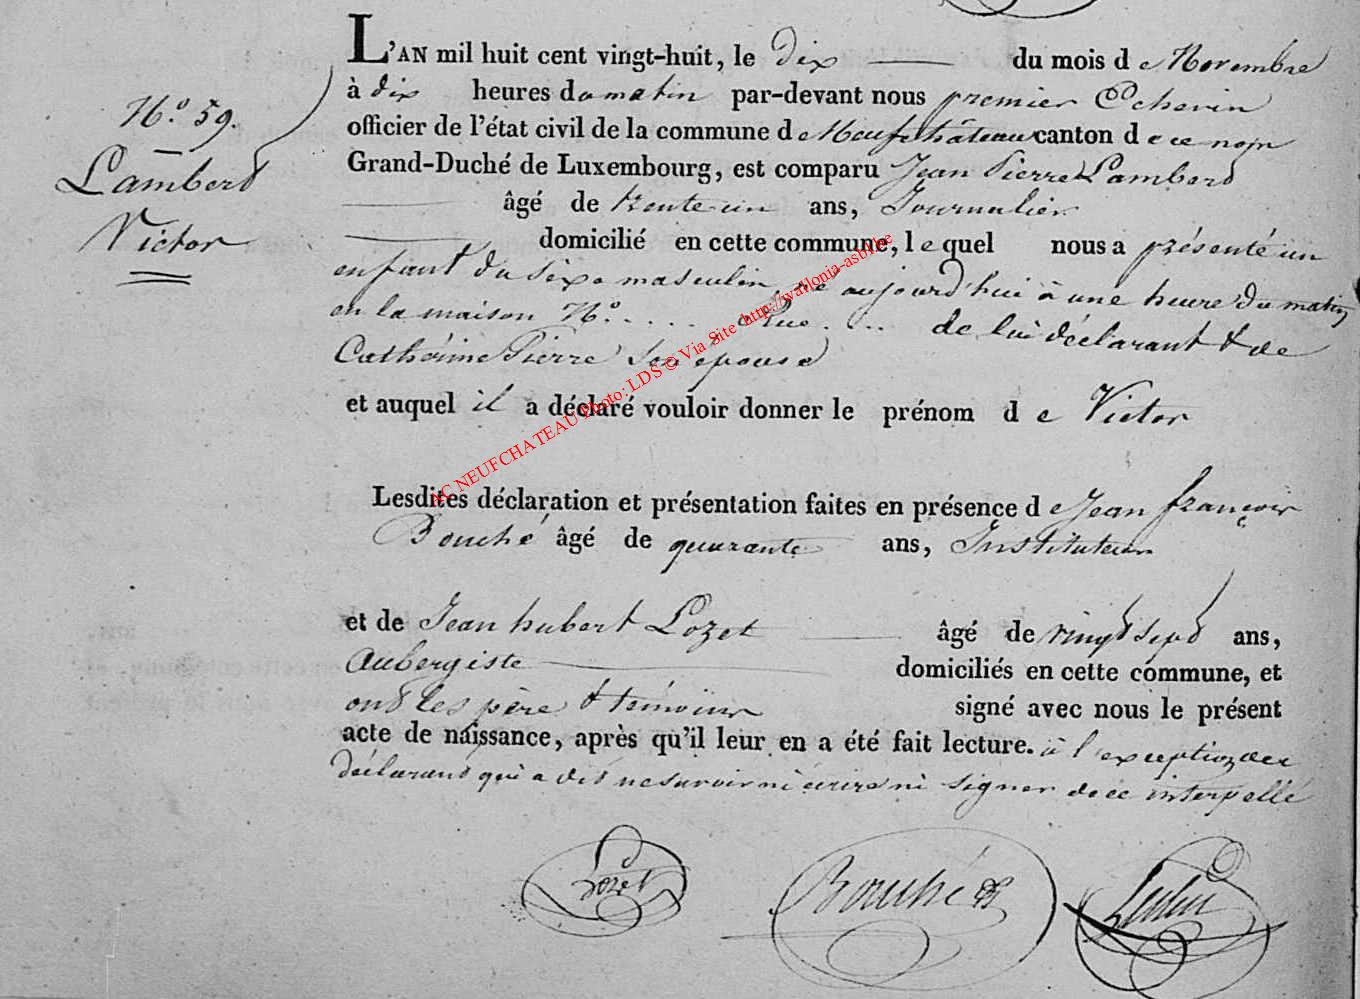 N.o 59.
Lambert
Victor
L'AN mil huit cent vingt-huit, le dix du mois de Novembre
à dix heures du matin par-devant nous premier Echevin
officier de l'état civil de la commune de Neufchâteau canton de ce nom
Grand-Duché de Luxembourg, est comparu Jean Pierre Lambert
âgé de trente un ans, Journalier
domicilié en cette commune, lequel nous a présenté un
enfant du sexe masculin, né aujourd'hui à une heure du matin
en la maison N.o .... Rue .... de lui déclarant & de
Cathérine Pierre son epouse
et auquel il a déclaré vouloir donner le prénom de Victor
Lesdites déclaration et présentation faites en présence de Jean françois
Bouché âgé de quarante ans, Instituteur
et de Jean hubert Lozet âgé de vingt sept ans,
Aubergiste domiciliés en cette commune, et
ont les père & témoins signé avec nous le présent
acte de naissance, après qu'il leur en a été fait lecture. à l'exception du
déclarant qui a dit ne savoir ni écrire ni signer de ce interpellé
Lozet Bouché
AC NEUFCHATEAU Photo: LDS © Via Site http://wallonia-asbl.be